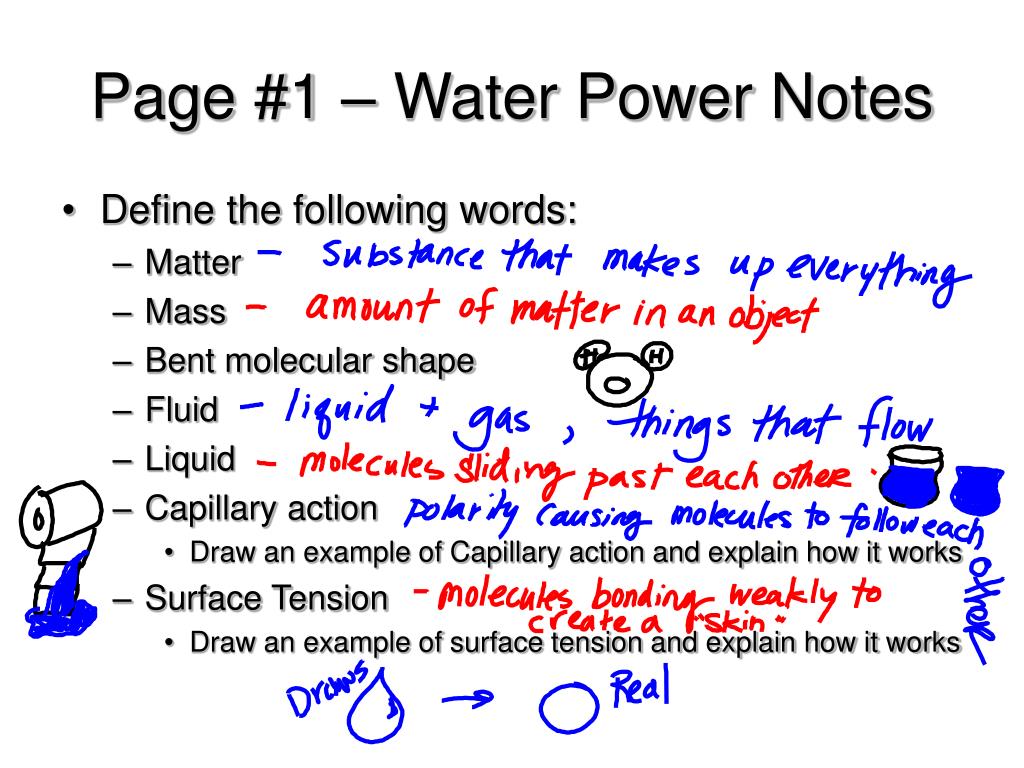 Page #1 – Water Power Notes
• Define the following words:
– Matter – Substance that makes up everything
– Mass – amount of matter in an object
– Bent molecular shape H H
– Fluid – liquid + gas, things that flow
– Liquid – molecules sliding past each other.
– Capillary action polarity causing molecules to follow each other
• Draw an example of Capillary action and explain how it works
– Surface Tension – molecules bonding weakly to
create a "skin"
• Draw an example of surface tension and explain how it works
Drawn → Real